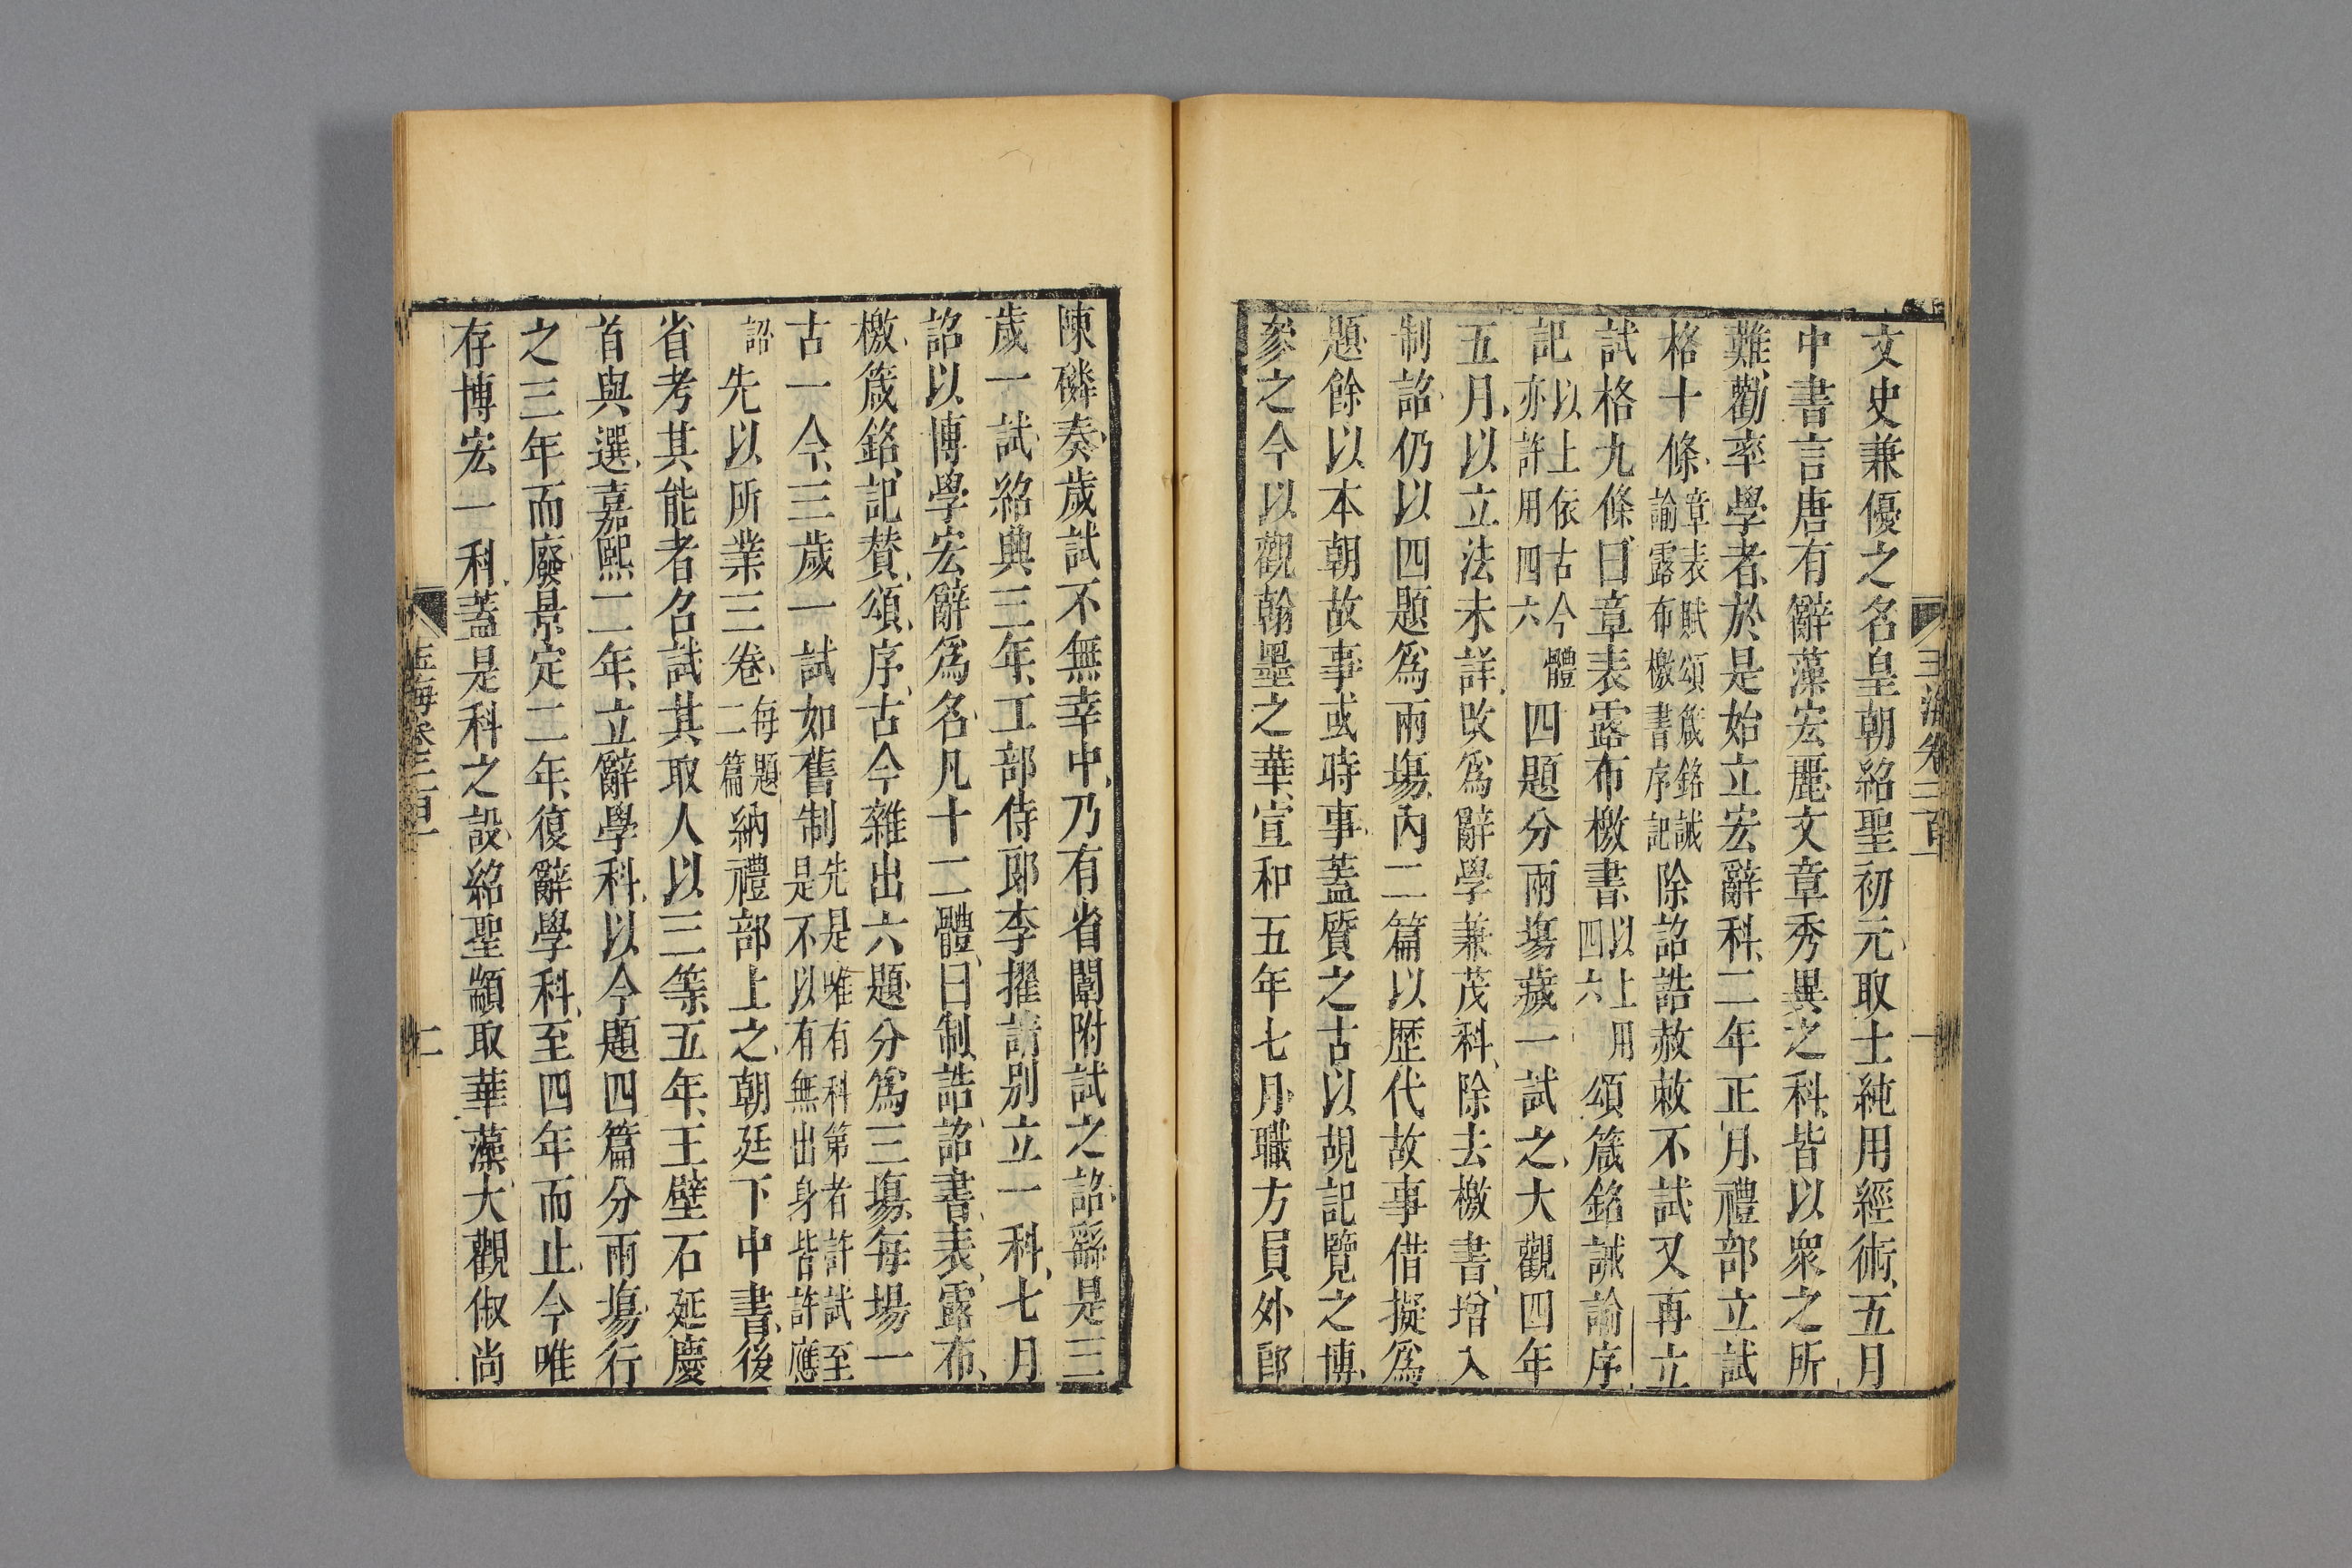 玉海卷二百一
一
文史兼優之名皇朝紹聖初元取士純用經術五月
中書言唐有辭藻宏麗文章秀異之科皆以衆之所
難勸率學者於是始立宏辭科二年正月禮部立試
格十條章表賦頌箴銘誡諭露布檄書序記除詔誥赦敕不試又再立
試格九條曰章表露布檄書以上用四六頌箴銘誡諭序
記以上依古今體亦許用四六四題分兩塲歲一試之大觀四年
五月以立法未詳改爲辭學兼茂科除去檄書增入
制詔仍以四題爲兩塲內二篇以歷代故事借擬爲
題餘以本朝故事或時事蓋質之古以覘記覽之博
參之今以觀翰墨之華宣和五年七月職方員外郎
陳磷奏歲試不無幸中乃有省闈附試之詔繇是三
歲一試紹興三年工部侍郎李擢請别立一科七月
詔以博學宏辭爲名凡十二體曰制誥詔書表露布
檄箴銘記贊頌序古今雜出六題分爲三塲每場一
古一今三歲一試如舊制先是唯有科第者許試至是不以有無出身皆許應
詔先以所業三卷每題二篇納禮部上之朝廷下中書後
省考其能者召試其取人以三等五年王壁石延慶
首與選嘉熙二年立辭學科以今題四篇分兩塲行
之三年而廢景定二年復辭學科至四年而止今唯
存博宏一科蓋是科之設紹聖顓取華藻大觀俶尚
玉海卷二百一
二